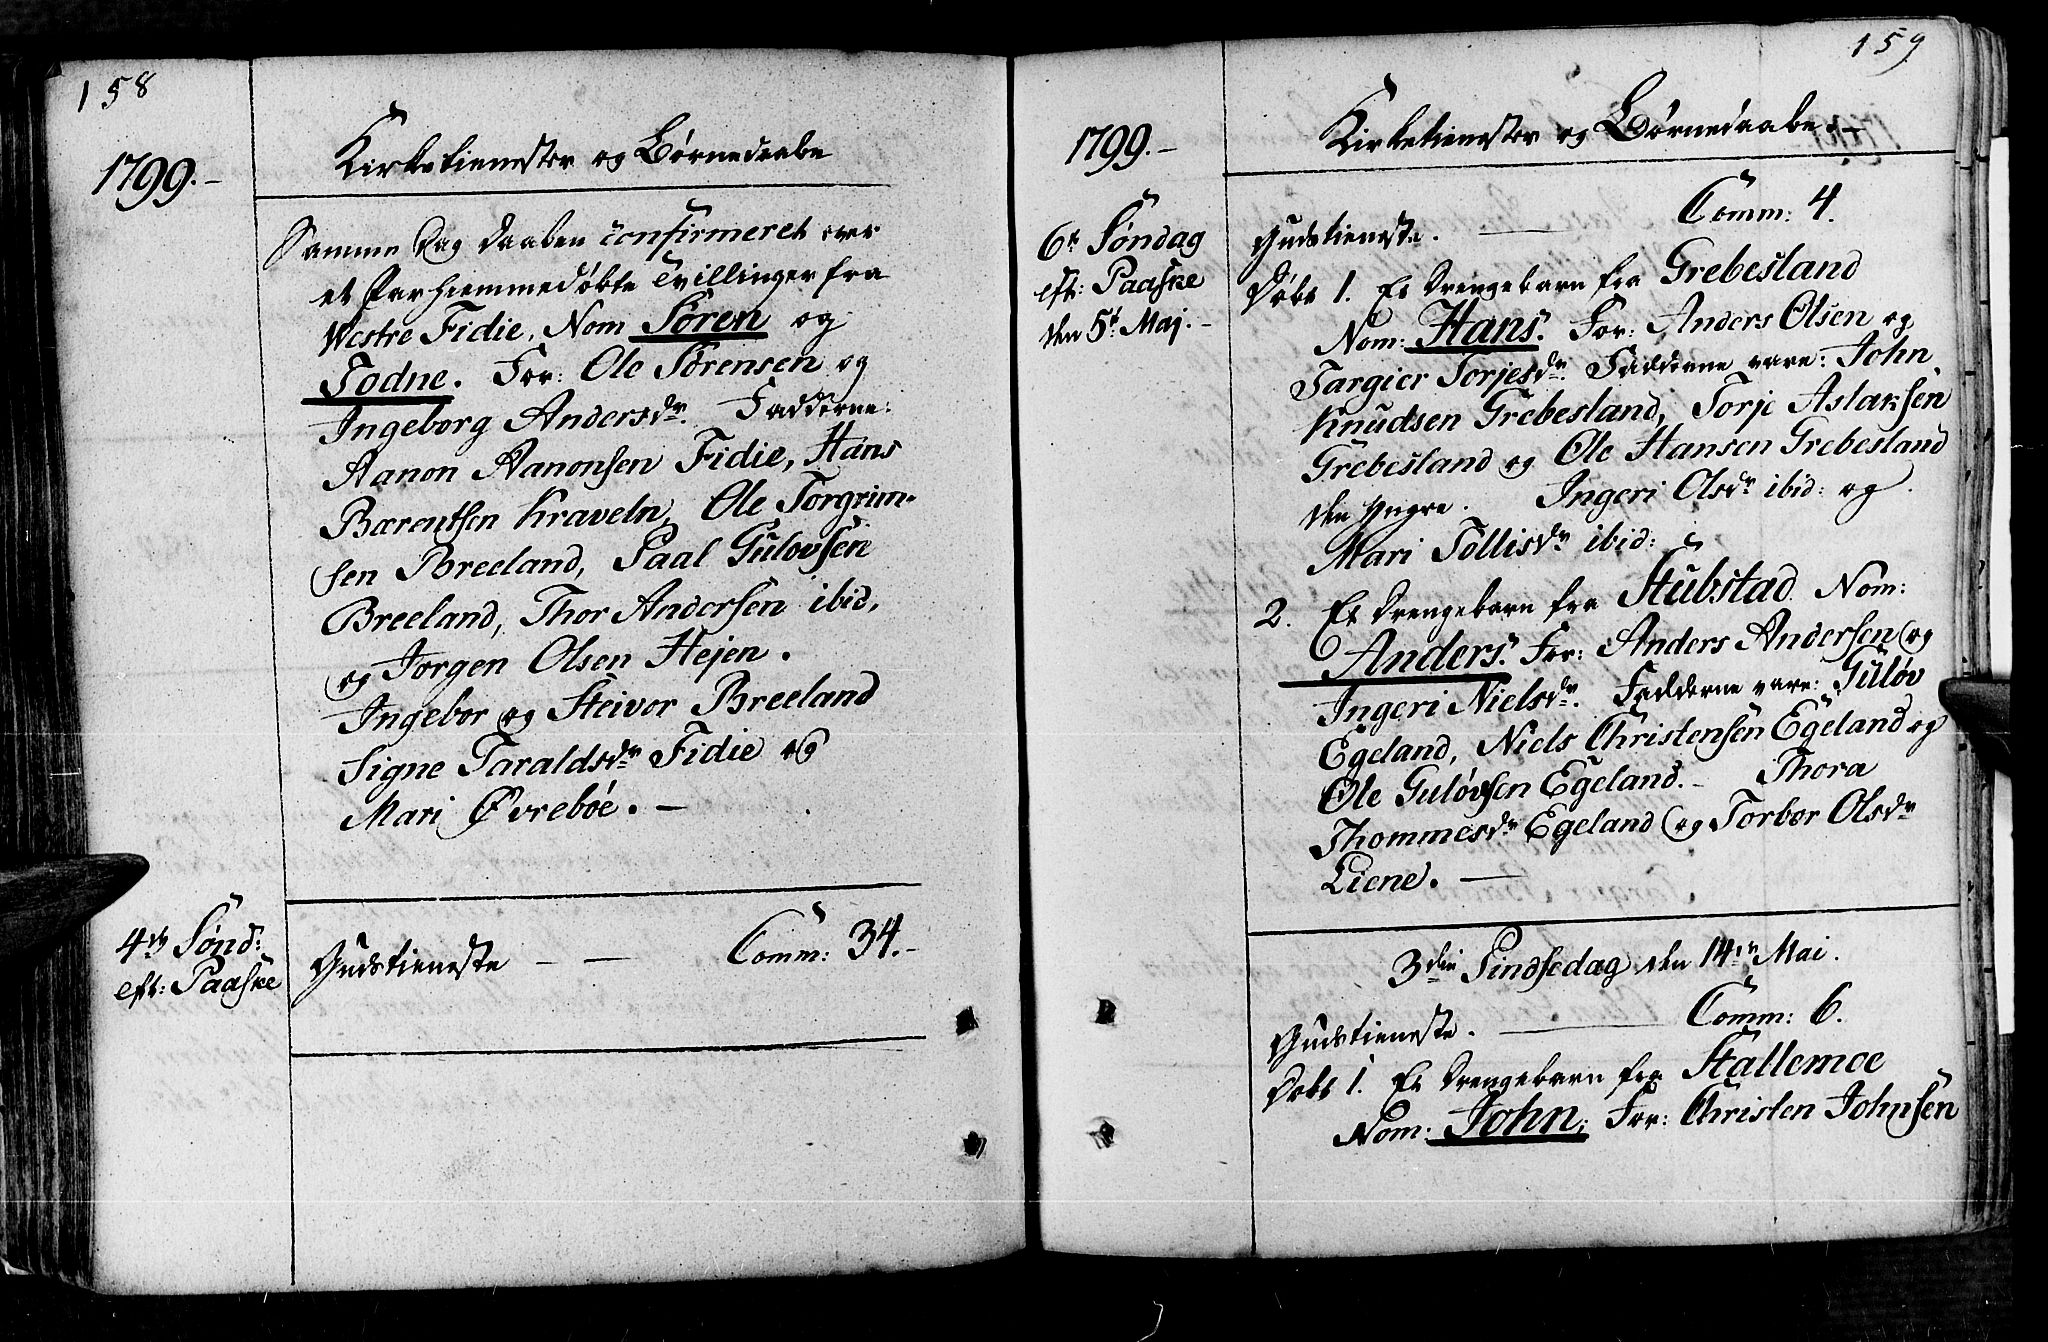 158
1799.-
Kirketieneste og Børnedaabe
Samme Dag daaben confirmeret over
et Par hiemmedøbte Tvillinger fra
Westre Fidie, Nom Søren og
Todne. For: Ole Sørensen og
Ingeborg Andersdr. Fadderne:
Aanon Aanonsen Fidie, Hans
Bærentsen Kraveln, Ole Torgrim-
sen Breeland, Paal Gulovsen
Breeland, Thor Andersen ibid,
og Jørgen Olsen Hejen.
Ingebor og Steivor Breeland
Signe Taraldsdr Fidie og
Mari Øvrebøe. -
4de Sønd:
eft: Paaske
Gudstieneste - - Comm: 34.-
159
1799.-
Kirketienester og Børnedaabe.-
6te Søndag
eft: Paaske
den 5t Maj.-
Gudstieneste. - Comm: 4.
Døbt 1. Et Drengebarn fra Grebesland
Nom: Hans. For: Anders Olsen og
Targier Torjesdr. Fadderne vare: John
Knudsen Grebesland, Torje Aslaksen
Grebesland og Ole Hansen Grebesland
den Yngre. Ingeri Olsdr ibid: og
Mari Tollisdr ibid:
2. Et Drengebarn fra Stubstad Nom:
Anders. For: Anders Andersen og
Ingeri Nielsdr. Fadderne vare: Guløv
Egeland, Niels Christensen Egeland og
Ole Guløvsen Egeland.- Thora
Thommesdr Egeland og Torbor Olsdr
Liene. -
3die Pindsedag den 14de Mai.
Gudstieneste. - Comm: 6.
Døbt 1. Et Drengebarn fra Stallemoe
Nom: John, For: Christen Johnsen